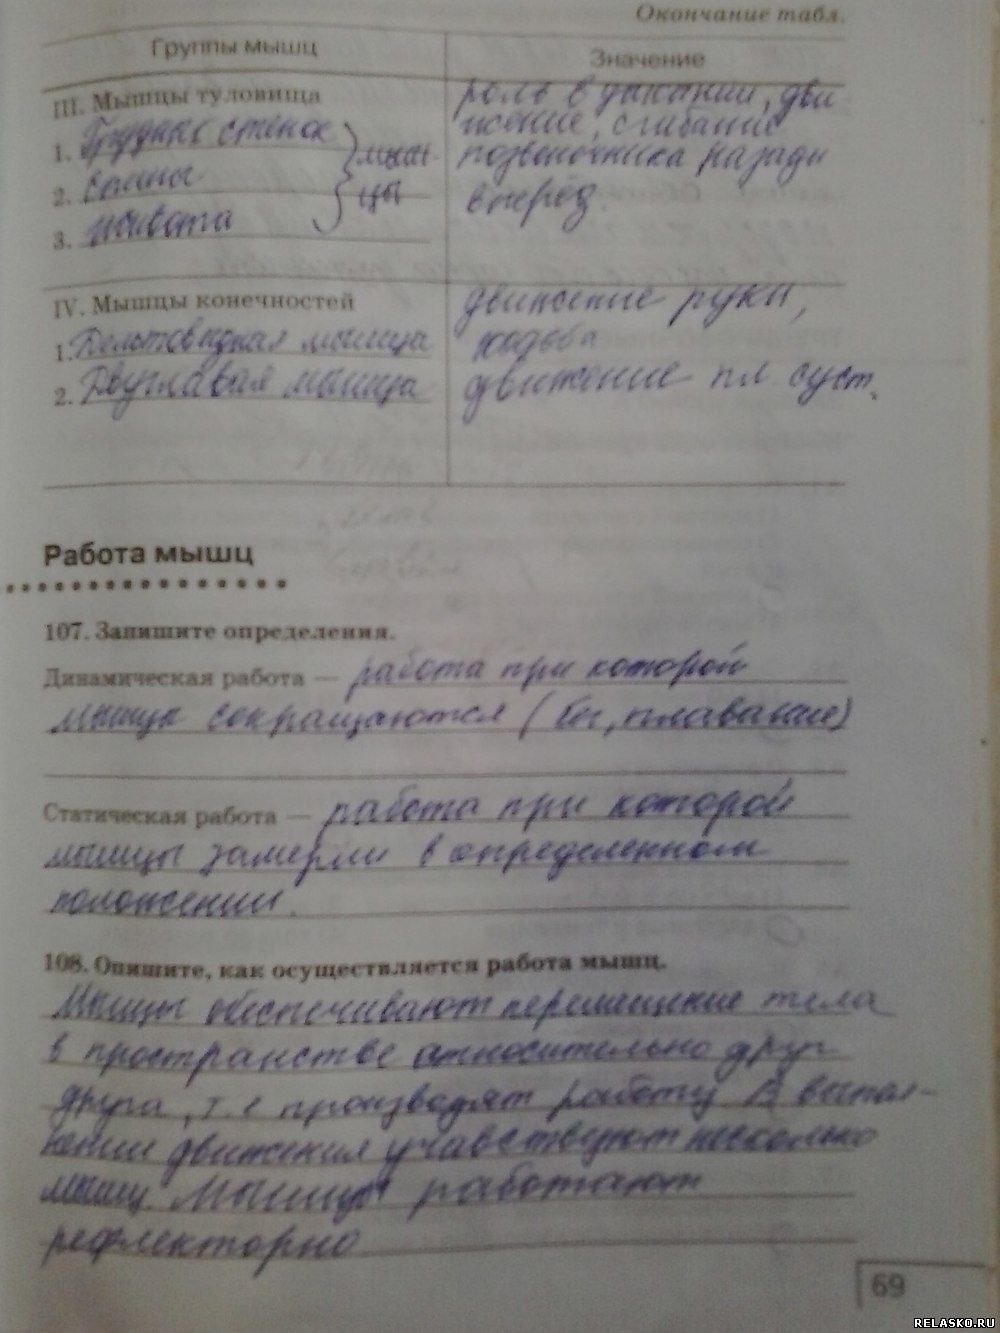 Окончание табл.
Группы мышц
Значение
III. Мышцы туловища
1. Грудных стенок
2. спины
3. живота
мыш-
цы
роль в дыхании, дви
жение, сгибание
позвоночника назад и
вперёд.
IV. Мышцы конечностей
1. Дельтовидная мышца
2. Двуглавая мышца
движение руки,
ходьба
движение пл. суст.
Работа мышц
107. Запишите определения.
Динамическая работа — работа при которой
мышцы сокращаются (бег, плавание)
Статическая работа — работа при которой
мышцы замерли в определенном
положении.
108. Опишите, как осуществляется работа мышц.
Мышцы обеспечивают перемещение тела
в пространстве относительно друг
друга, т.е производят работу В выпол-
нении движения учавствуют несколько
мышц. Мышцы работают
рефлекторно
69
RELASKO.RU